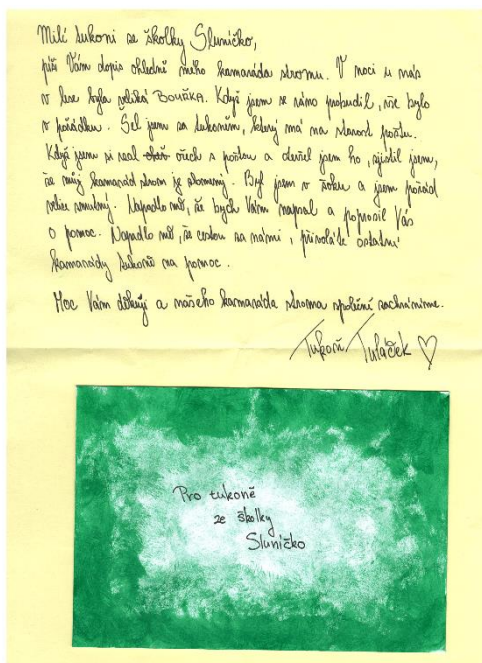 Milí tukoni ze školky Sluníčko,
píši Vám dopis ohledně mého kamaráda stromu. V noci u nás
v lese byla veliká BOUŘKA. Když jsem se ráno probudil, vše bylo
v pořádku. Šel jsem za tukoněm, který má na starost poštu.
Když jsem si vzal ořech s poštou a otevřel jsem ho, zjistil jsem,
že můj kamarád strom je zlomený. Byl jsem v šoku a jsem pořád
velice smutný. Napadlo mě, že bych Vám napsal a poprosil Vás
o pomoc. Napadlo mě, že cestou za námi, přivoláte ostatní
kamarády tukoně na pomoc.
Moc Vám děkuji a našeho kamaráda stroma společně zachráníme.
Tukoň Tuláček ♡
Pro tukoně
ze školky
Sluníčko